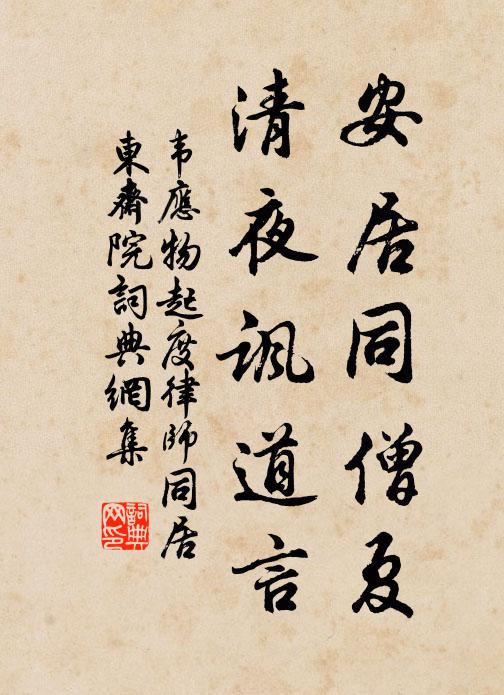 安居同僧夏
清夜諷道言
韦應物起度律師同居
東齋院詞典網集
詞典
网印